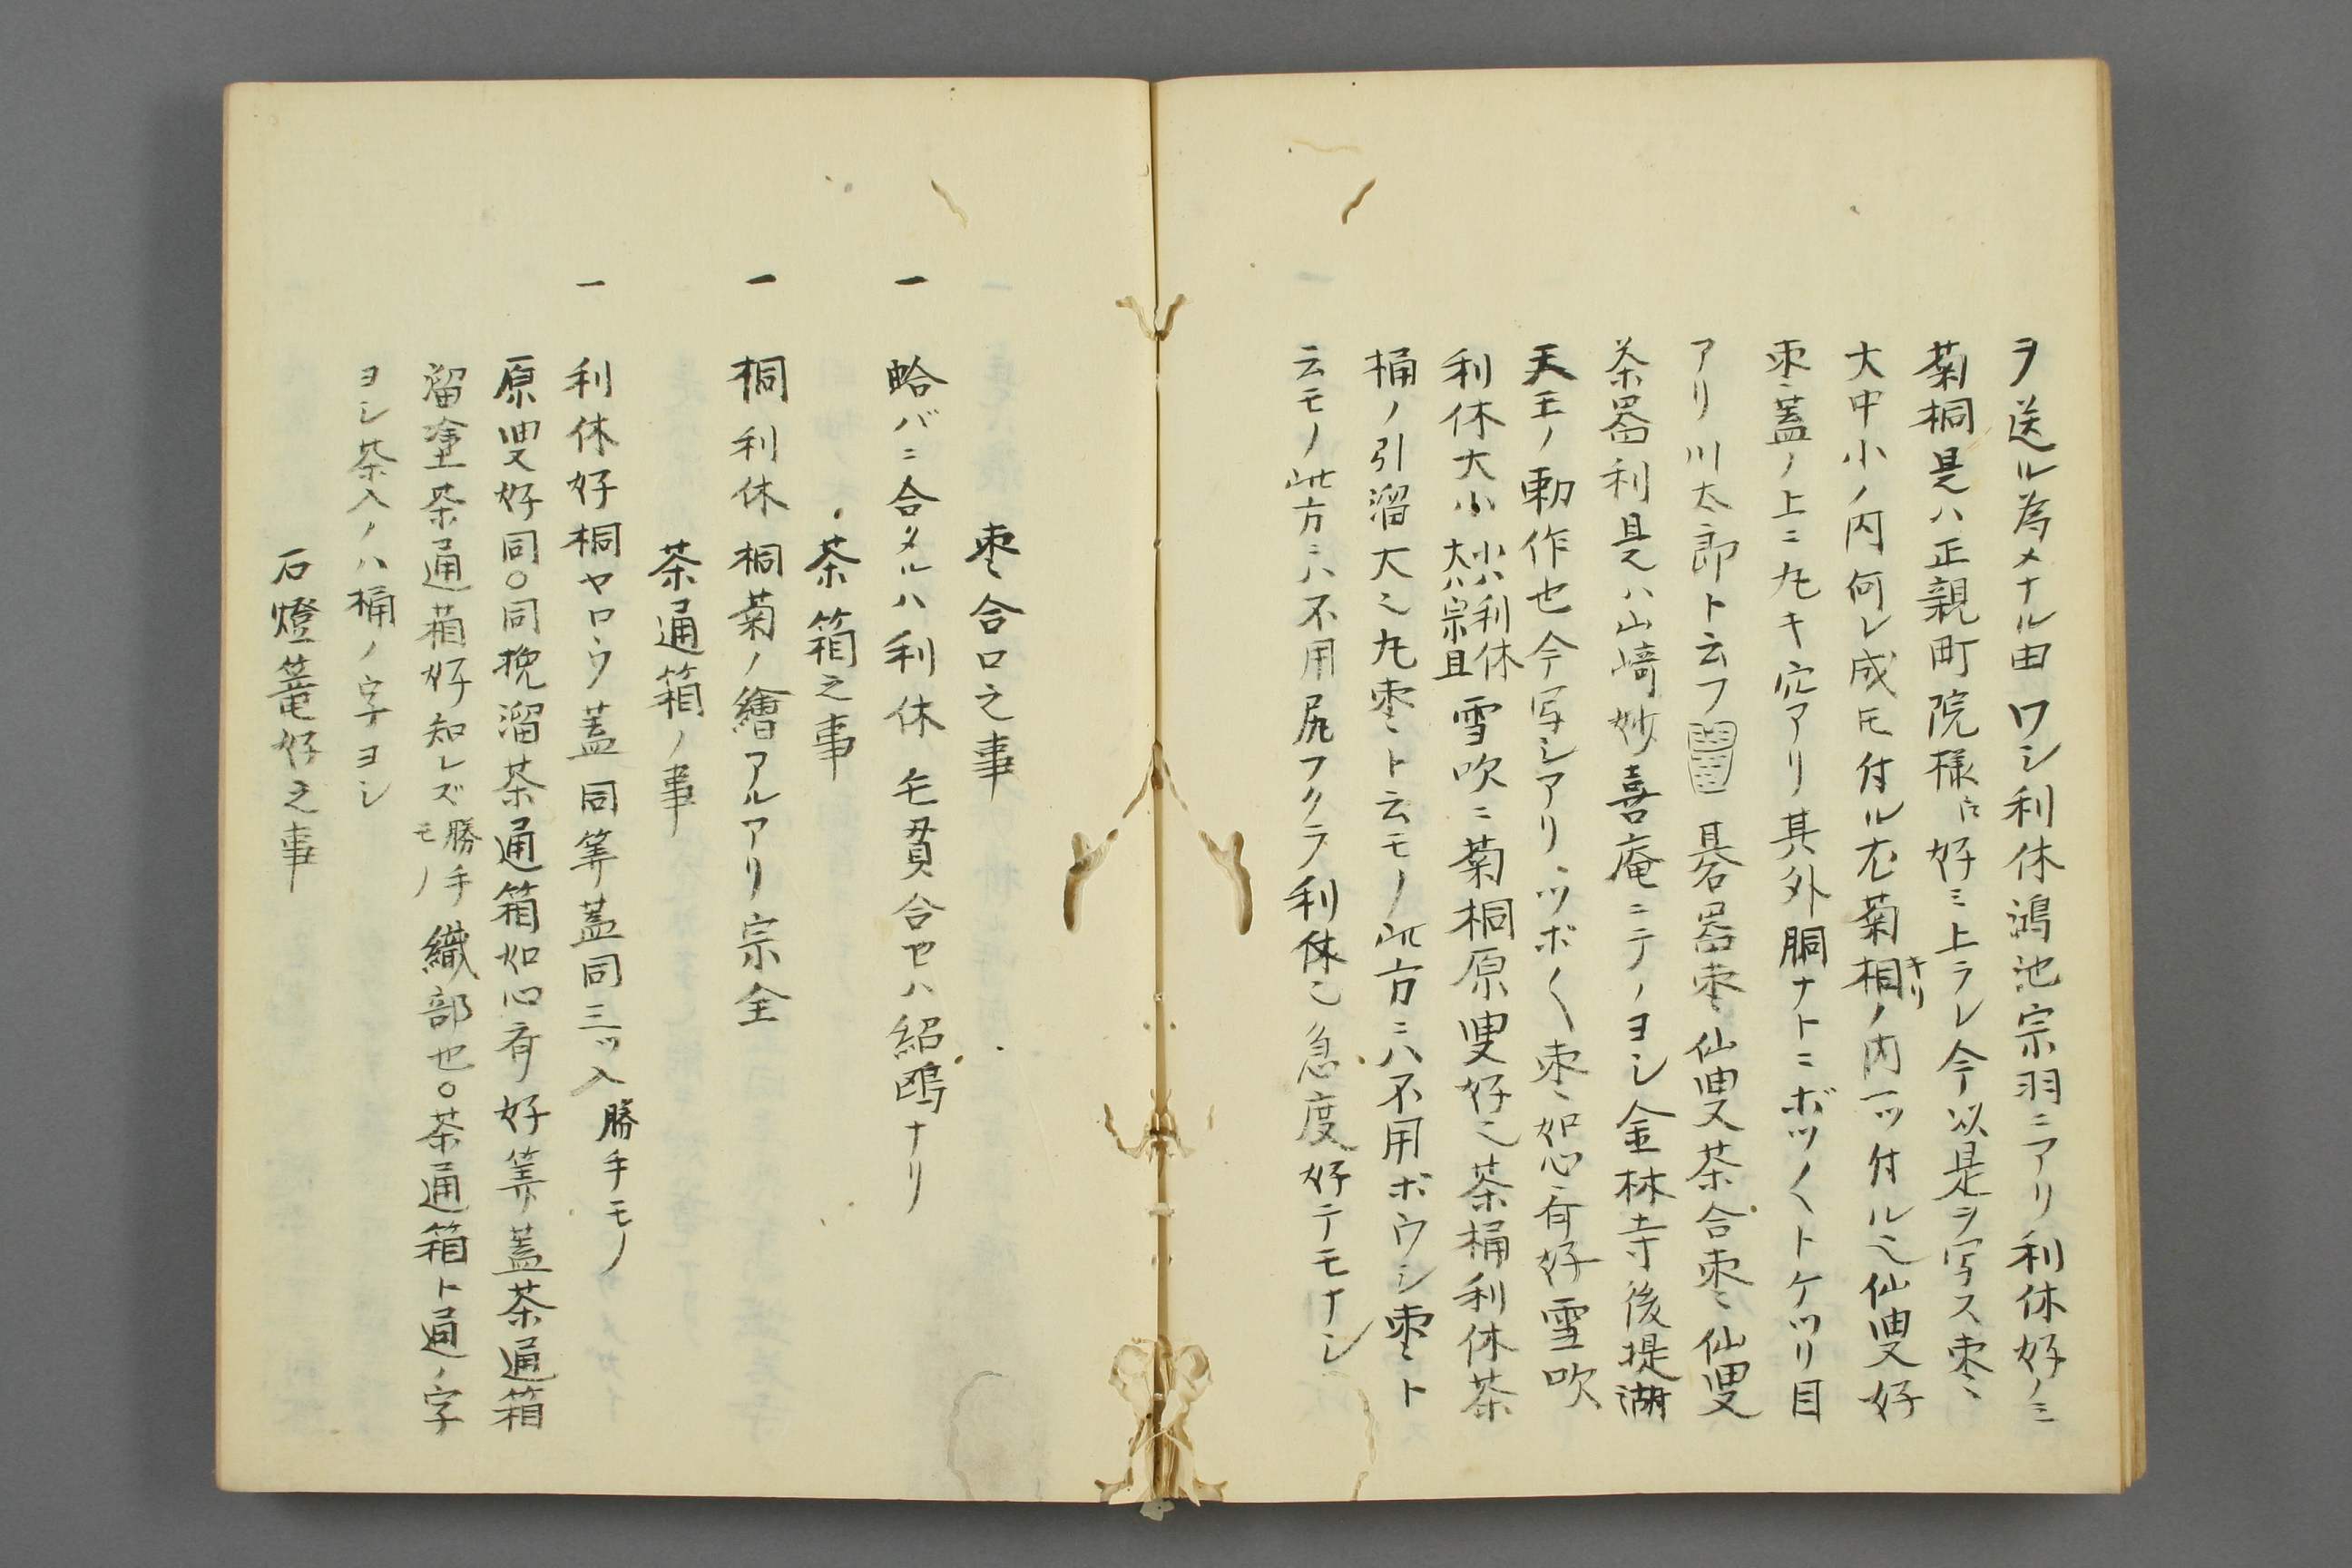 ヲ送ル為メナル由ワシ利休鴻池宗羽ニアリ利休好ノミ
菊桐是ハ正親町院様江好ミ上ラレ今以是ヲ写ス枣〻
大中小ノ内何レ成𪜈付ル尤菊桐キリノ内一ッ付ル也仙叟好
枣〻蓋ノ上ニ丸キ穴アリ其外胴ナトニボツ〱トケツリ目
アリ川太郎ト云フ 碁器枣〻仙叟茶合枣〻仙叟
茶器利是ハ山崎妙喜庵ニテノヨシ金林寺後提湖
天王ノ勅作也今写シアリツボ〱枣〻如心斎好雪吹
利休大小小ハ利休大ハ宗旦雪吹ニ菊桐原叟好也茶桶利休茶
桶ノ引溜大也丸枣〻ト云モノ此方ニハ不用ボウシ枣〻ト
云モノ此方ニハ不用尻フクラ利休也急度好テモナシ
枣〻合口之事
一 蛤バニ合タルハ利休 毛貫合セハ紹鴎ナリ
茶箱之事
一 桐利休 桐菊ノ繪アルアリ宗全
茶通箱ノ事
一 利休好桐ヤロウ蓋同筭蓋同三ッ入勝手モノ
原叟好同〇同挽溜茶通箱如心斎好筭蓋茶通箱
溜塗茶通箱好知レズ勝手モノ織部也〇茶通箱ト通ノ字
ヨシ茶入ノハ桶ノ字ヨシ
石燈篭好之事